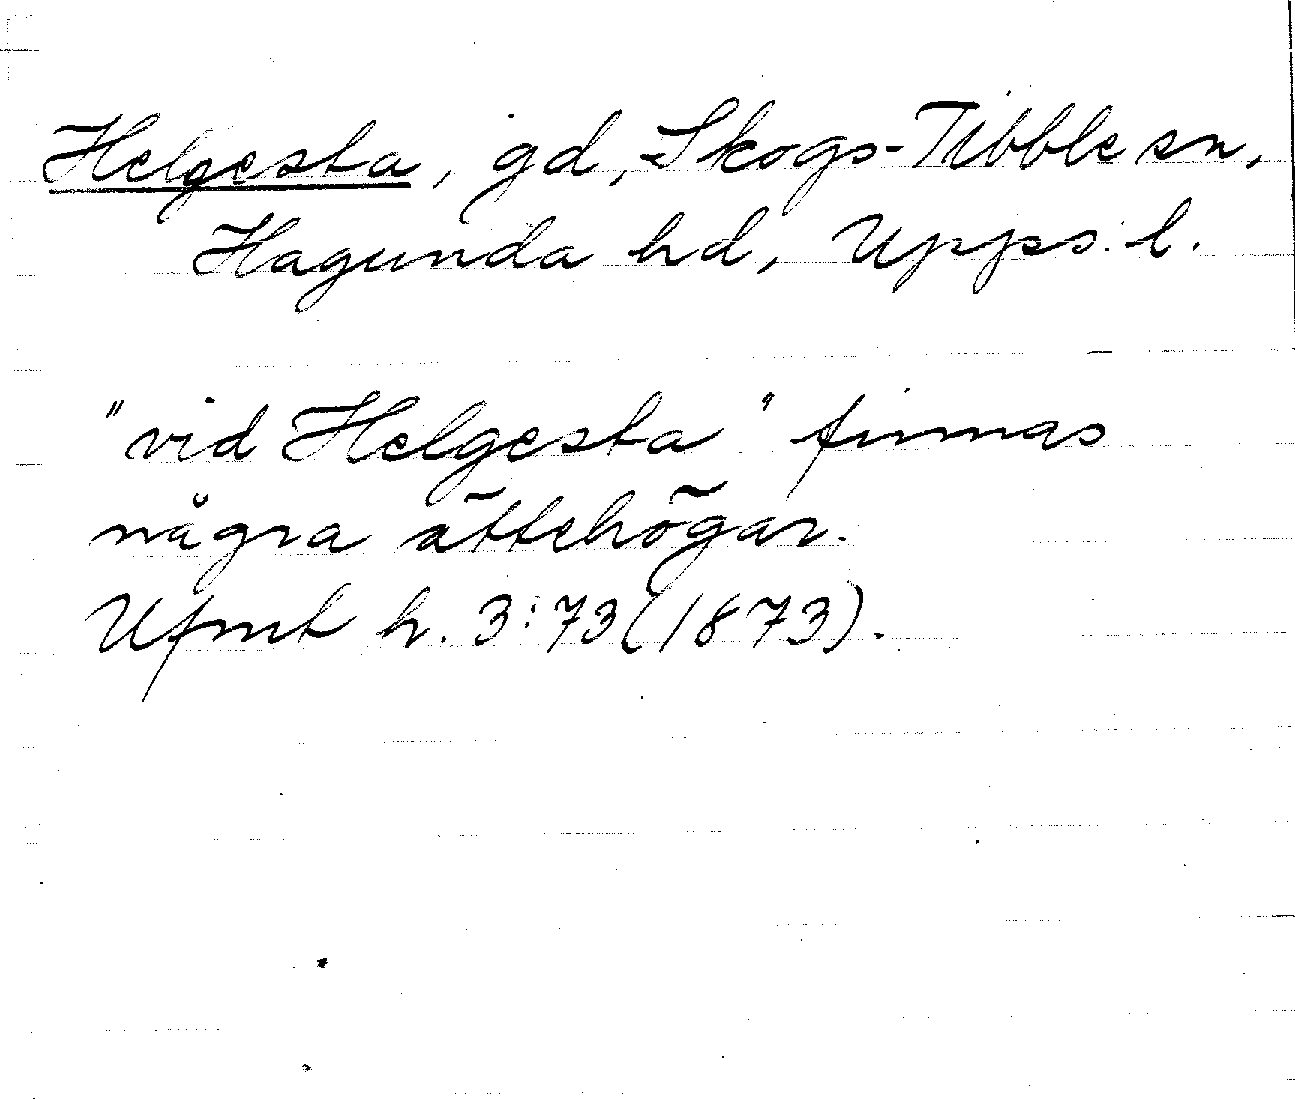 Helgesta, gd, Skogs-Tibble sn,
Hagunda hd, Upps. l.
"vid Helgesta" finnas
några ättehögar.
Ufmt h. 3:73 (1873).